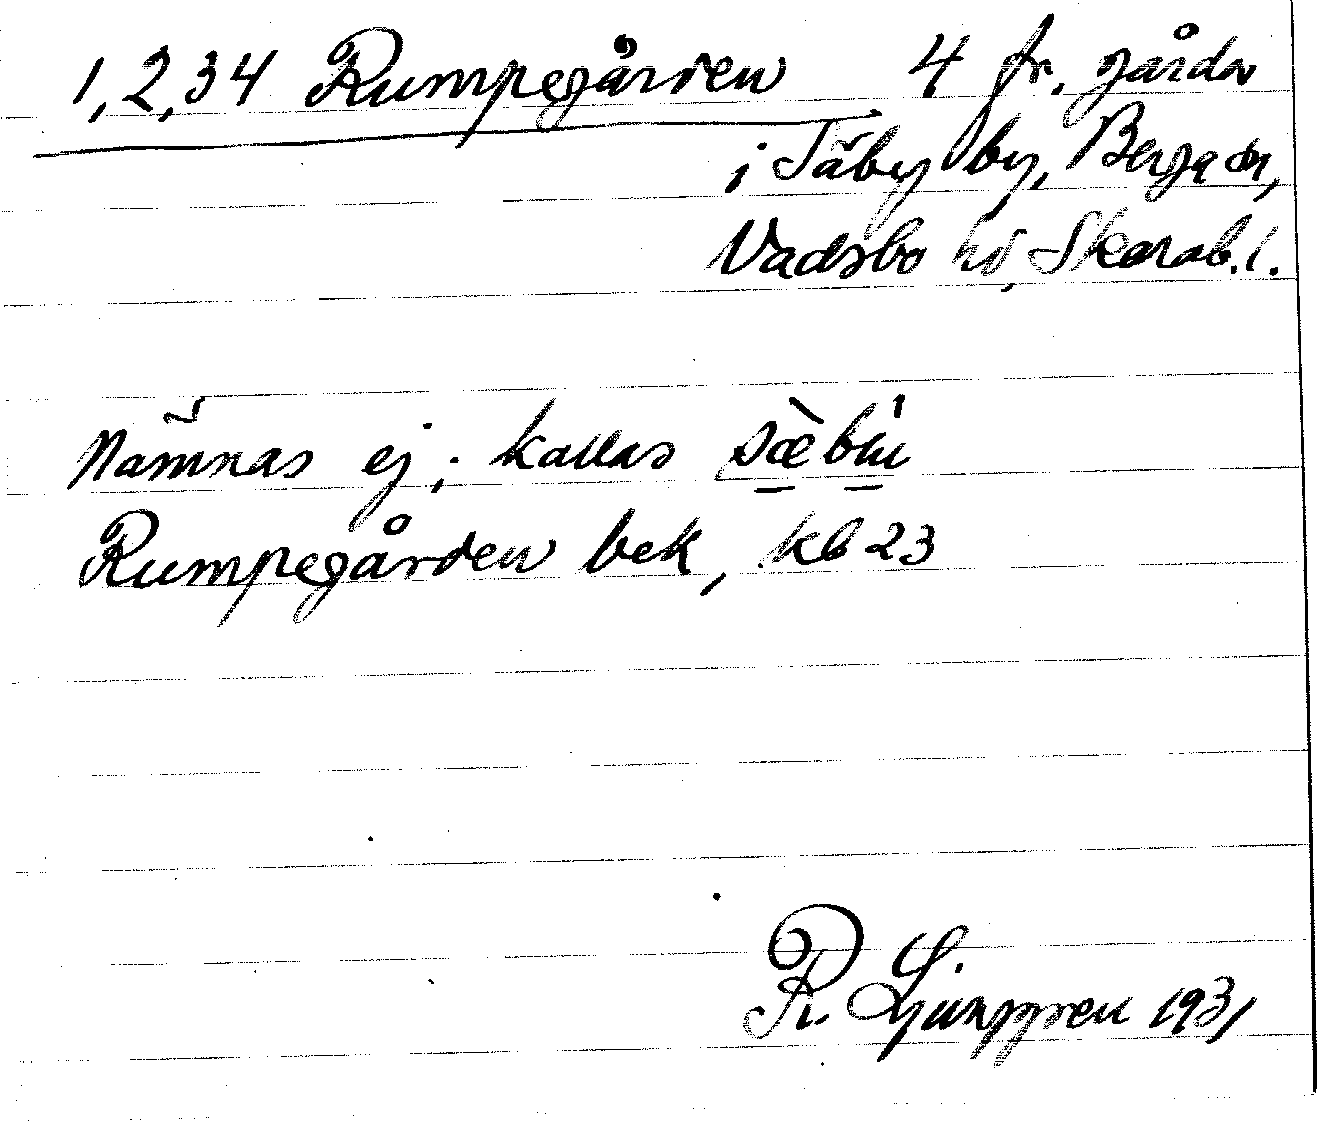 1,2,34 Rumpegården 4 fr. gårdar
i Täby by, Berga sn,
Vadsbo hd, Skarab.l.
Nämnas ej; kallas
Rumpegården bek, kb 23
R. Ljunggren 1931